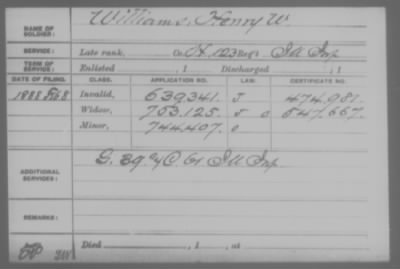 NAME OF SOLDIER: Williams, Henry W.
SERVICE: Late rank, Co. H, 123 Reg't Ill Inf
TERM OF SERVICE: Enlisted , 1 Discharged , 1
DATE OF FILING. CLASS. APPLICATION NO. LAW. CERTIFICATE NO.
1888 Feb 8 Invalid, 639.341. J 474.981.
Widow, 703.125. 547.667.
Minor, 744.407.
ADDITIONAL SERVICES: G. 39 & C. 61 Ill Inf
REMARKS:
Died , 1 , at